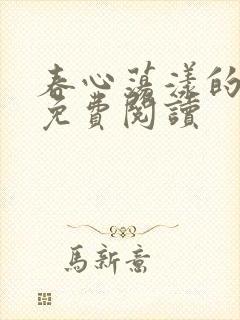 春心荡漾的
免費閱讀
馬新意